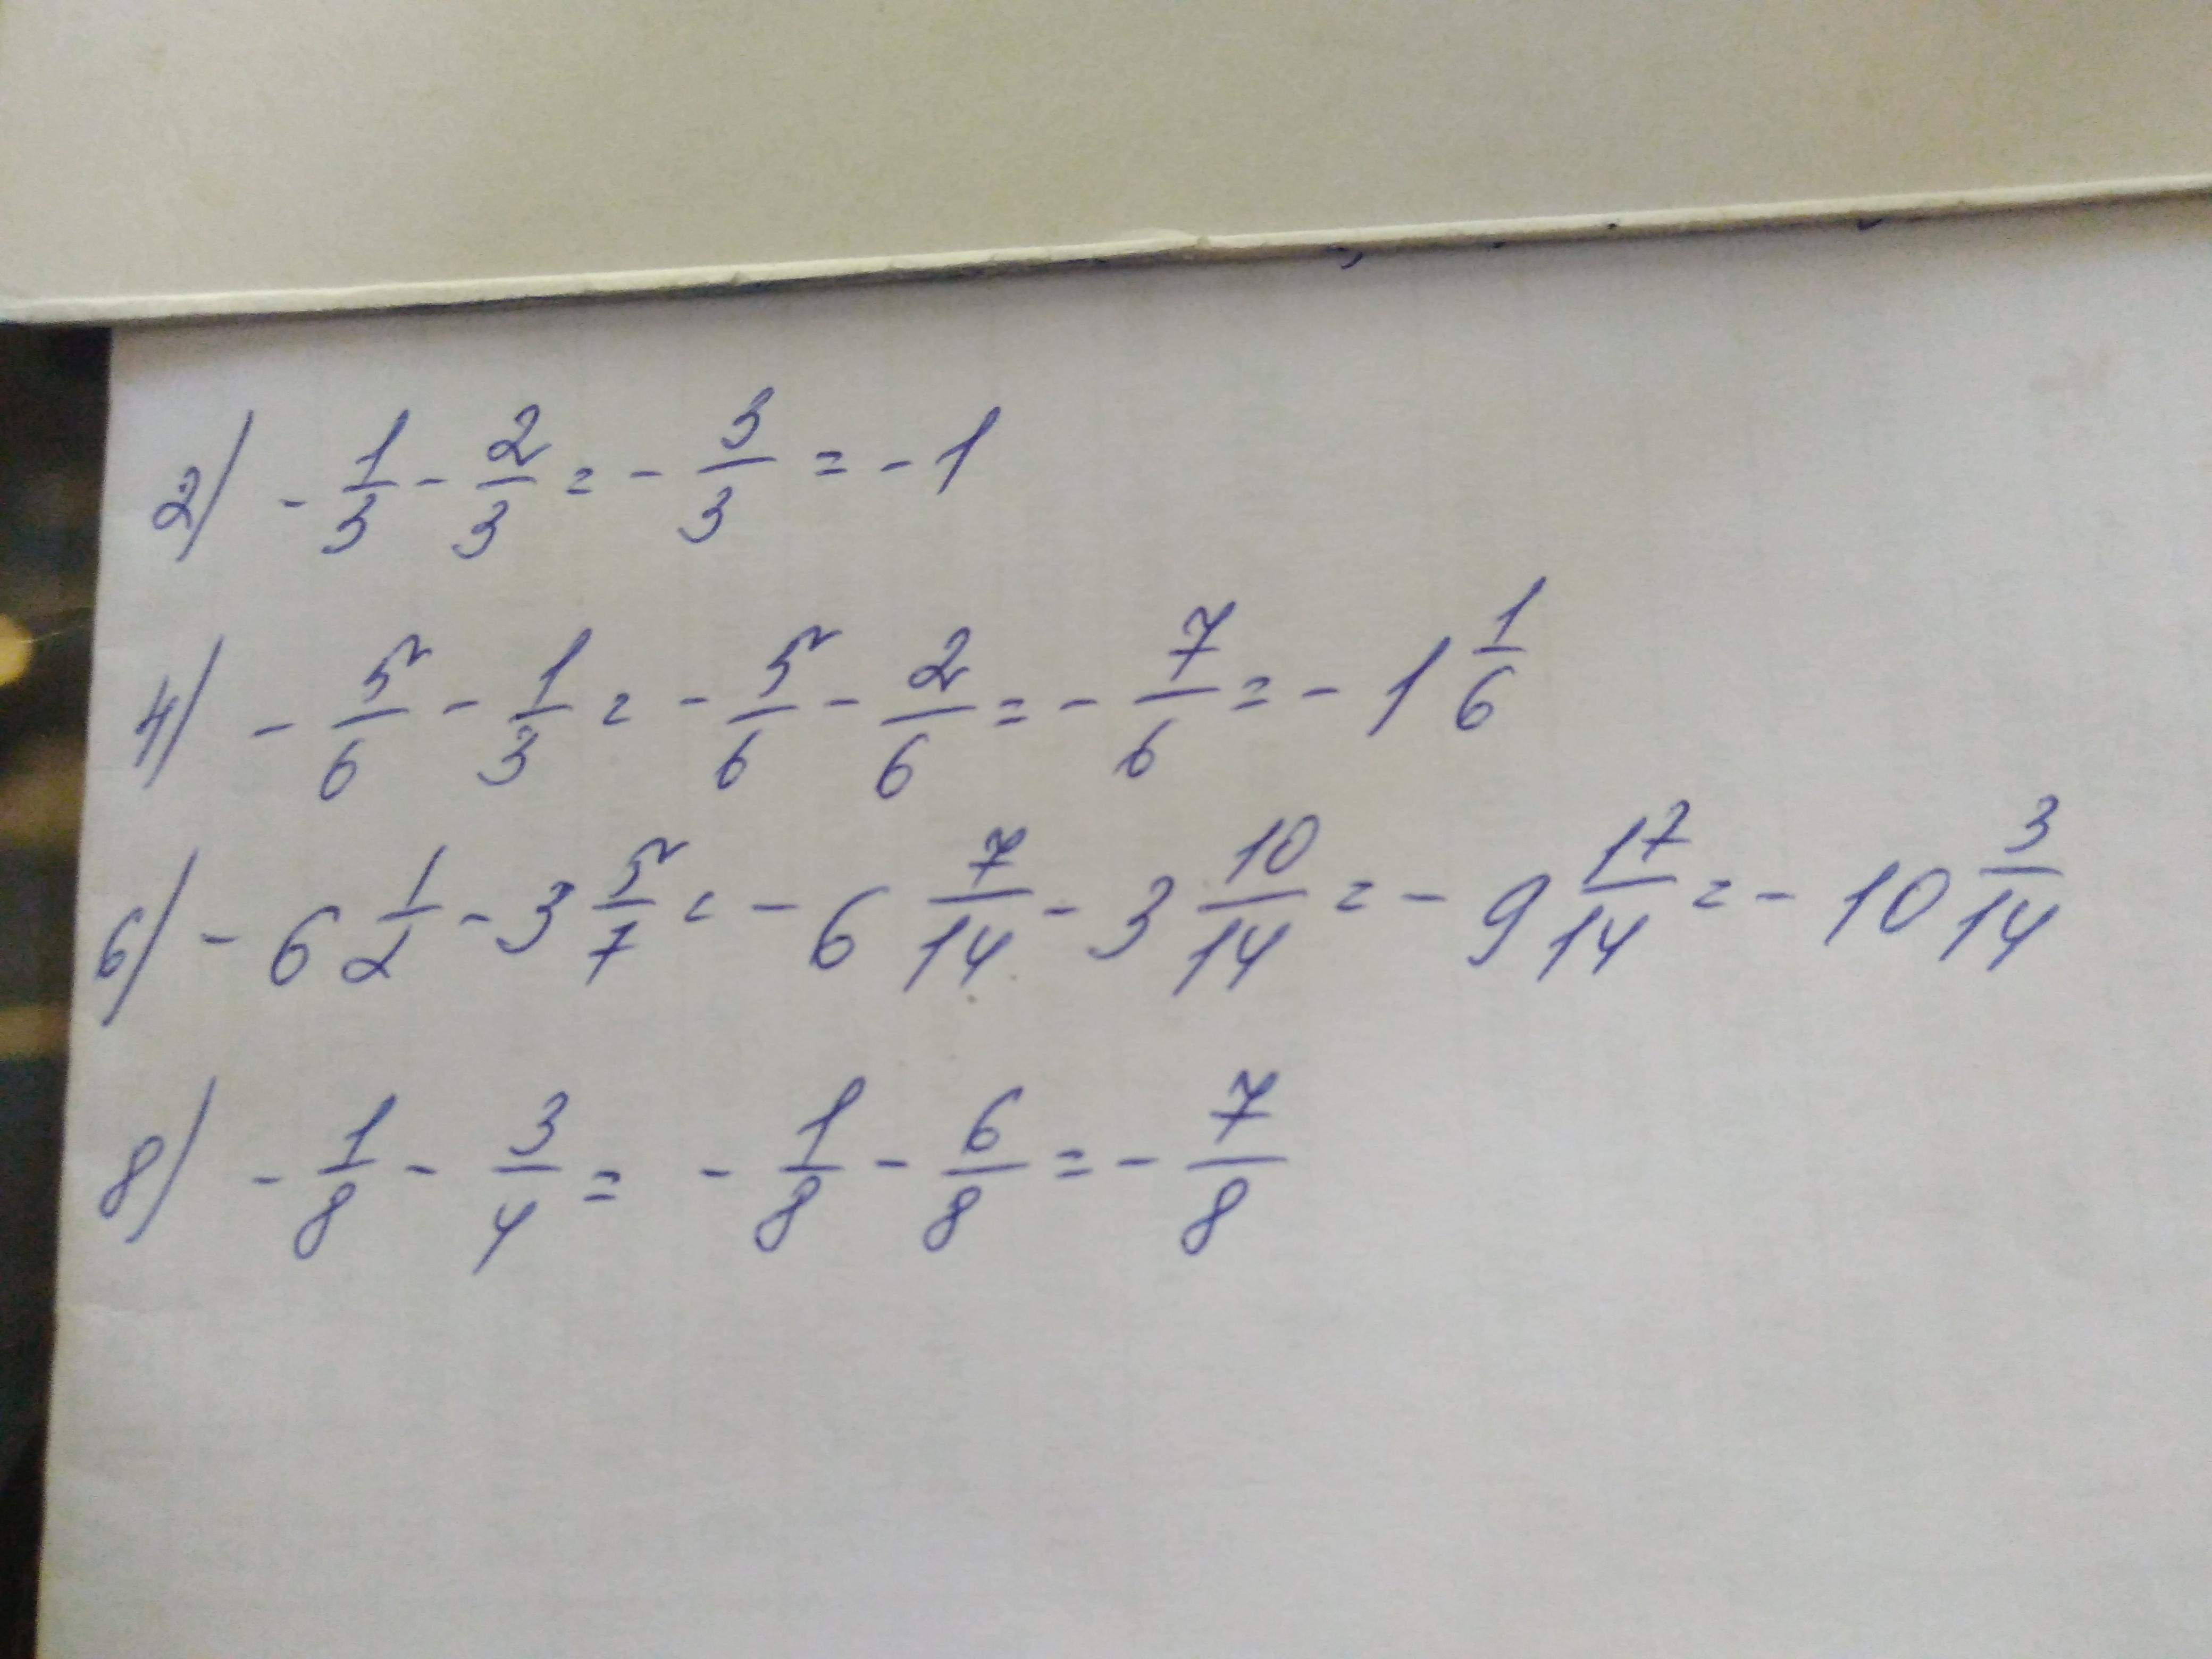 2) - 1/3 - 2/3 = - 3/3 = - 1
4) - 5/6 - 1/3 = - 5/6 - 2/6 = - 7/6 = - 1 1/6
6) - 6 1/2 - 3 5/7 = - 6 7/14 - 3 10/14 = - 9 17/14 = - 10 3/14
8) - 1/8 - 3/4 = - 1/8 - 6/8 = - 7/8